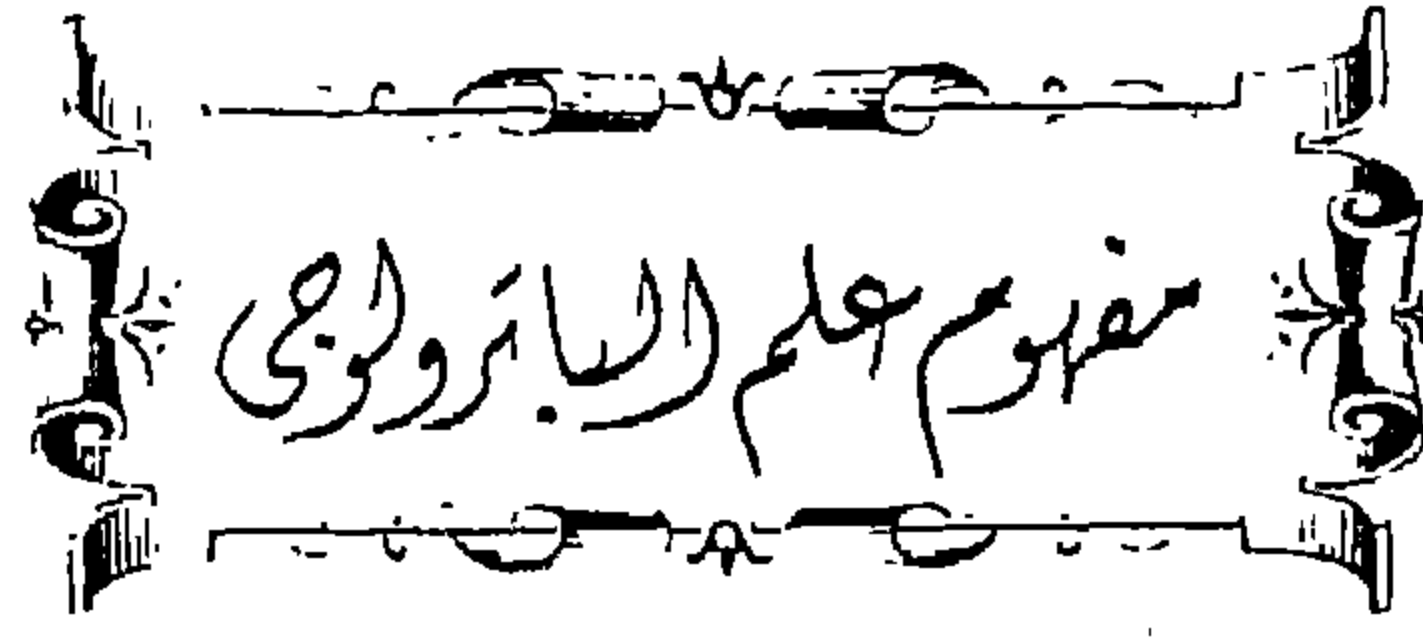 مفهوم علم الباترولوجى